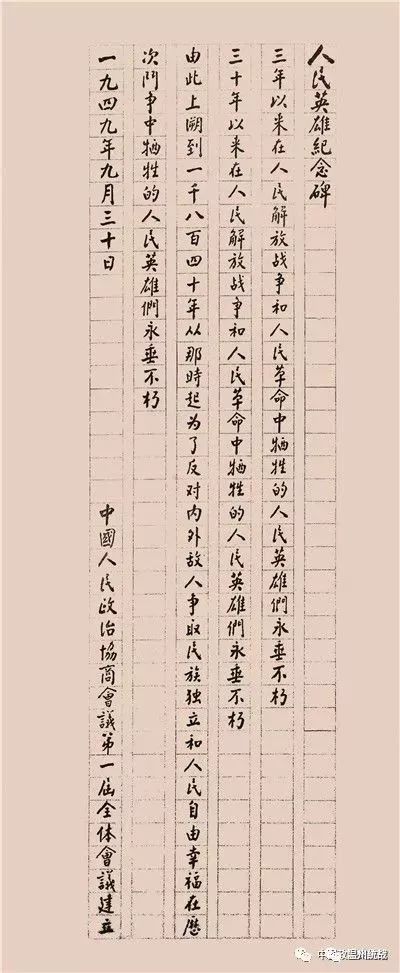 人民英雄紀念碑
三年以来在人民解放战争和人民革命中牺牲的人民英雄們永垂不朽
三十年以来在人民解放战争和人民革命中牺牲的人民英雄們永垂不朽
由此上溯到一千八百四十年从那時起为了反对内外敌人争取民族独立和人民自由幸福在歷
次鬥争中牺牲的人民英雄們永垂不朽
一九四九年九月三十日 中國人民政治協商會議第一屆全体會議建立
温州统战